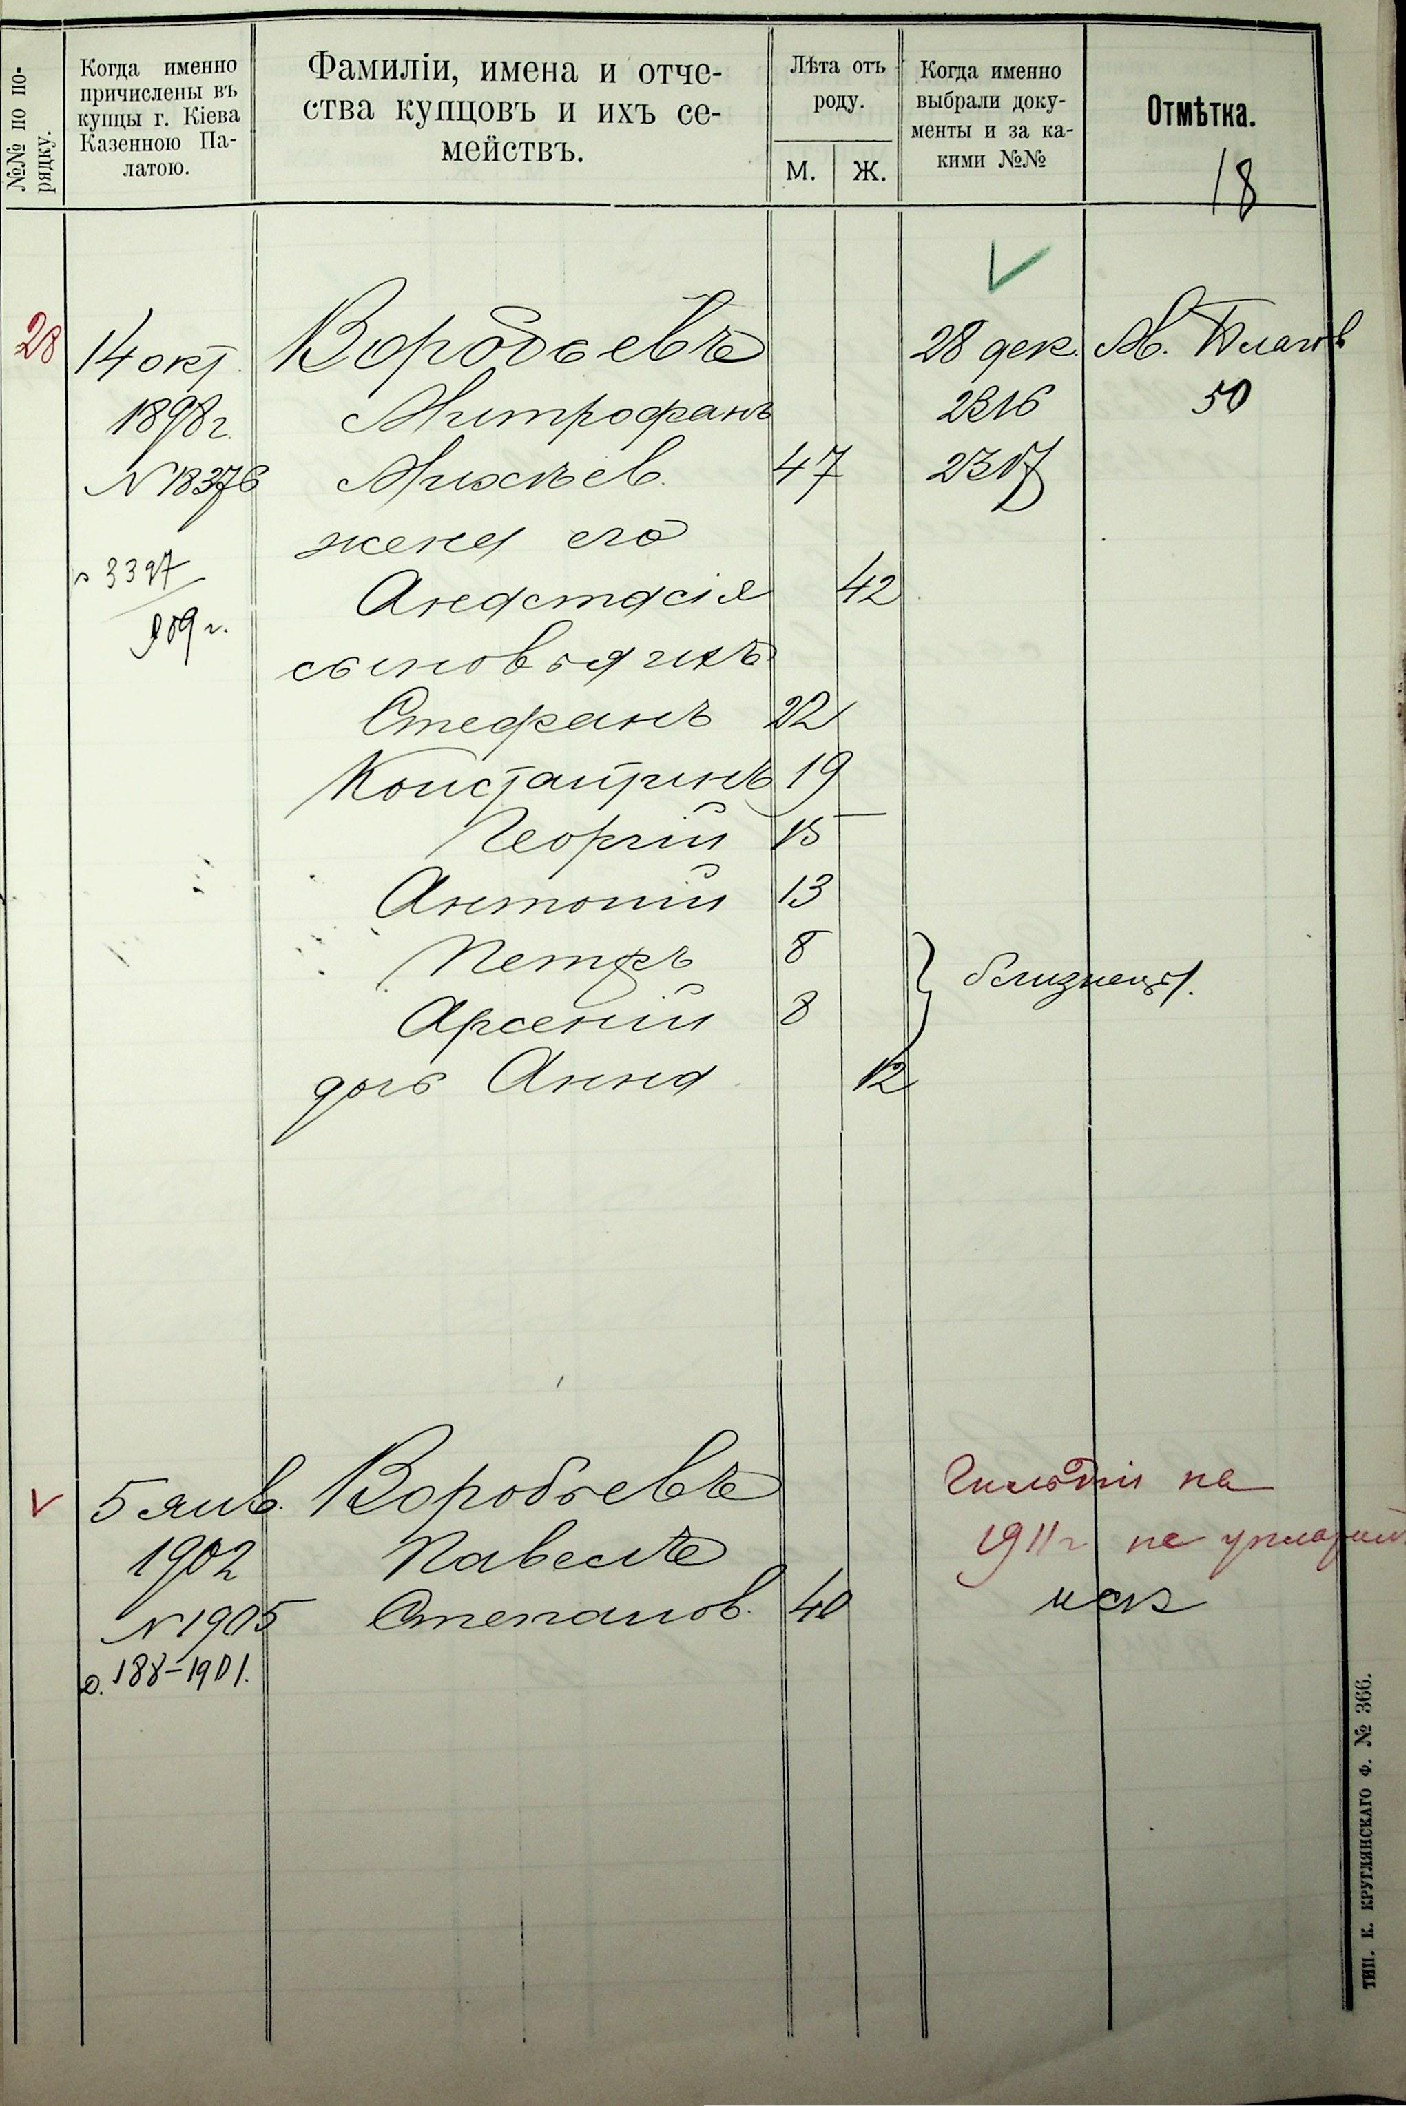 №№ по по-
рядку.
Когда именно
причислены въ
купцы г. Кіева
Казенною Па-
латою.
Фамиліи, имена и отче-
ства купцовъ и ихъ се-
мействъ.
Лѣта отъ
роду.
М.
Ж.
Когда именно
выбрали доку-
менты и за ка-
кими №№
Отмѣтка.
18
28
14 окт.
1898 г.
№ 18376
3397
909 г.
Воробьевъ
Митрофанъ
47
жена его
Анастасія 42
сыновья ихъ
Стефанъ 22
Константинъ 19
Георгій 15
Антоній 13
Петръ 8
Арсеній 8
близнецы.
дочь Анна 12
28 дек.
2316
2317
50
5 янв.
1902
№ 1905
188-1901.
Воробьевъ
Павелъ
Степанов. 40
на
1911 г не
иск
Тип. К. Круглянскаго Ф. № 366.